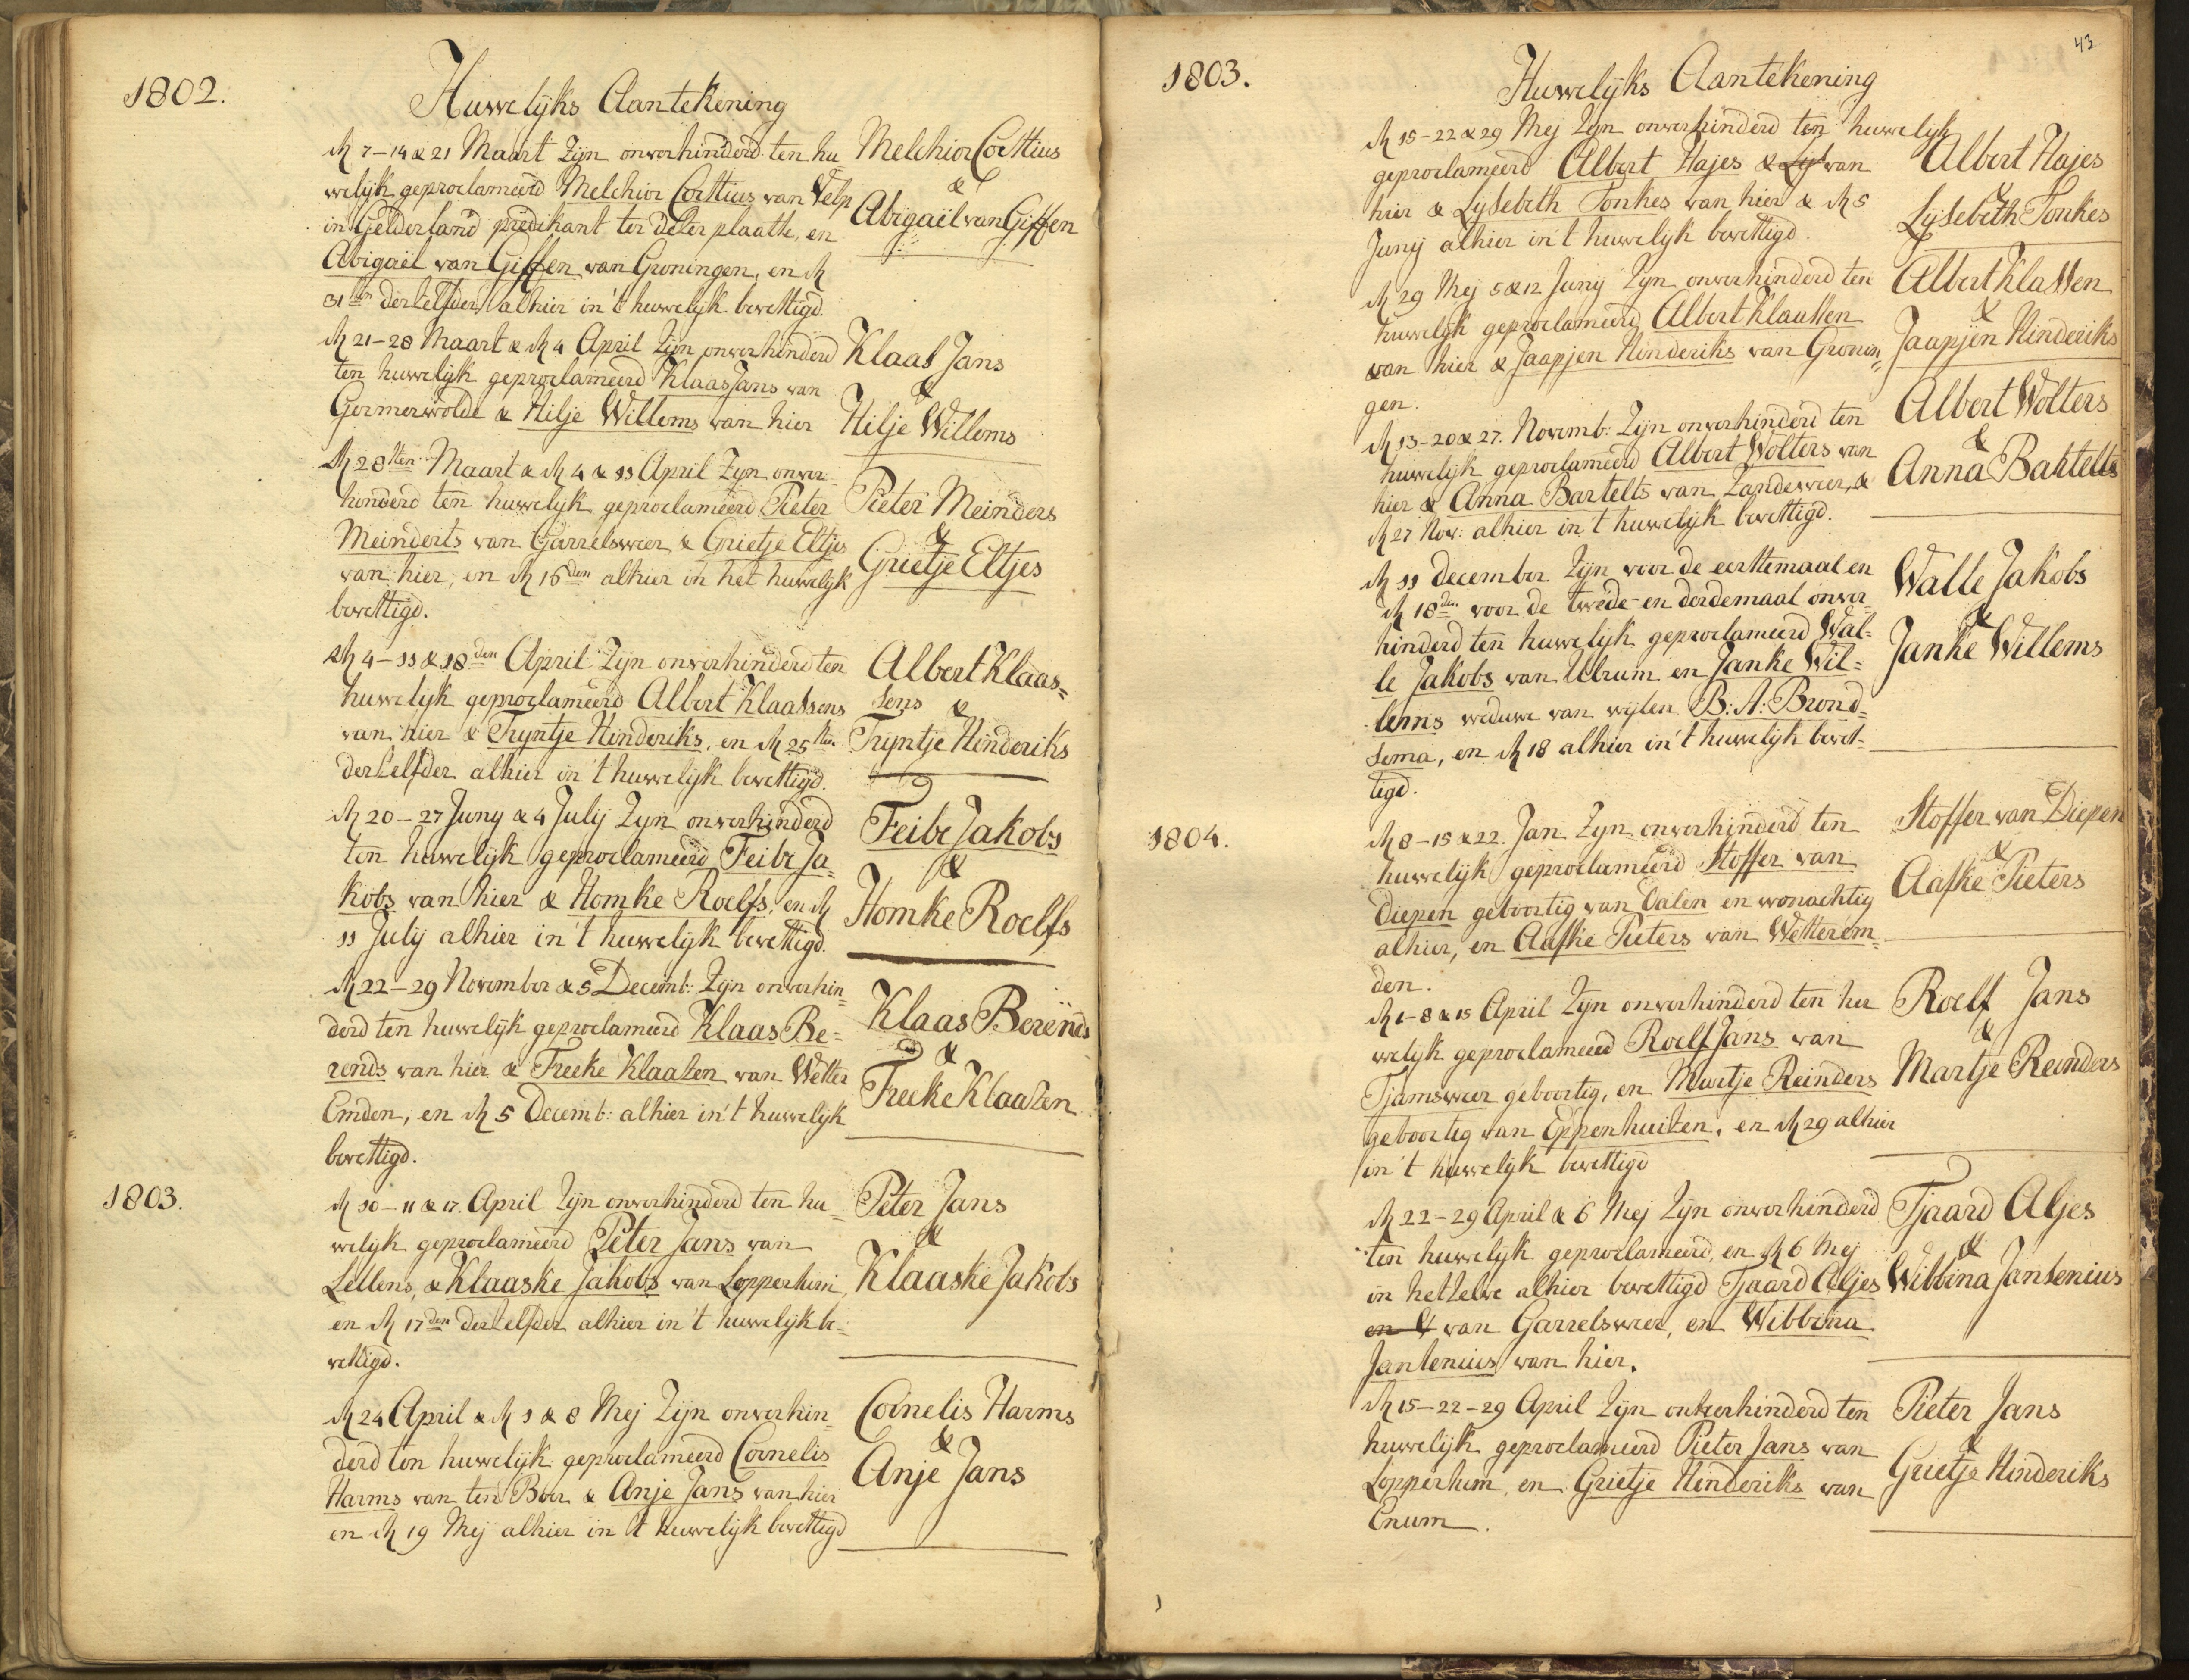 1802.
Huwelijks Aantekening
den 7-14 & 21 Maart zijn onverhinderd ten hu
welijk geproclameerd Melchior Corstius van Velp
in Gelderland predikant ter deser plaatse, en
Abigaël van Giffen van Groningen, en den
31sten derzelfder alhier in't huwelijk bevestigd.
Melchior Corstius
&
Abigaël van Giffen
den 21-28 Maart & den 4 April zijn onverhinderd
ten huwelijk geproclameerd Klaas Jans van
Germerwolde & Hilje Willems van hier
Klaas Jans
&
Hilje Willems
den 28sten Maart & den 4 & 11 April zijn onver-
hinderd ten huwelijk geproclameerd Pieter
Meinderts van Garrelsweer & Grietje Eltjes
van hier, en den 16den alhier in het huwelijk
bevestigd.
Pieter Meinders
&
Grietje Eltjes
den 4-11 & 18den April zijn onverhinderd ten
huwelijk geproclameerd Albert Klaassens
van hier & Trijntje Hinderiks, en den 25sten
derzelfder alhier in't huwelijk bevestigd.
Albert Klaas=
sens &
Trijntje Hinderiks
den 20-27 Junij & 4 Julij zijn onverhinderd
ten huwelijk geproclameerd Feibe Ja=
kobs van hier & Homke Roelfs, en den
11 Julij alhier in't huwelijk bevestigd.
Feibe Jakobs
&
Homke Roelfs
den 22-29 November & 5 Decemb: zijn onverhin=
derd ten huwelijk geproclameerd Klaas Be=
rends van hier & Freeke Klaasen van Wetter
Emden, en den 5 Decemb: alhier in't huwelijk
bevestigd.
Klaas Berends
&
Freeke Klaasen
1803.
den 10-11 & 17. April zijn onverhinderd ten hu=
welijk geproclameerd Peter Jans van
Lellens, & Klaaske Jakobs van Loppersum,
en den 17den derzelfder alhier in't huwelijk be=
vestigd.
Peter Jans
&
Klaaske Jakobs
den 24 April & den 1 & 8 Mej zijn onverhin=
derd ten huwelijk geproclameerd Cornelis
Harms van ten Boer & Anje Jans van hier
en den 19 Mej alhier in 't huwelijk bevestigd
Cornelis Harms
&
Anje Jans
43.
1803.
Huwelijks Aantekening
den 15-22 & 29 Mej zijn onverhinderd ten huwelijk
geproclameerd Albert Hajes & Lys van
hier & Lysebeth Tonkes van hier & den 5
Junij alhier in't huwelijk bevestigd.
Albert Hajes
&
Lysebeth Tonkes
den 29 Mej 5 & 12 Junij zijn onverhinderd ten
huwelijk geproclameerd Albert Klaassen
van hier & Jaapjen Hinderiks van Gronin=
gen.
Albert Klassen
&
Jaapjen Hinderiks
den 13-20 & 27. Novemb: zijn onverhinderd ten
huwelijk geproclameerd Albert Wolters van
hier & Anna Bartelts van Zandeweer, &
den 27 Nov: alhier in 't huwelijk bevestigd.
Albert Wolters
&
Anna Bartelts
den 11 December zijn voor de eerstemaal en
den 18den voor de twede en derdemaal onver
hinderd ten huwelijk geproclameerd Wal=
le Jakobs van Ulrum en Janke Wil=
lems weduwe van wijlen B: A: Brond=
sema, en den 18 alhier in't huwelijk bevest-
tigd.
Walle Jakobs
&
Janke Willems
1804.
den 8-15 & 22. Jan. zijn onverhinderd ten
huwelijk geproclameerd Stoffer van
Diepen geboortig van Dalen en wonachtig
alhier, en Aafke Pieters van Wetterem=
den.
Stoffer van Diepen
&
Aafke Pieters
den 1-8 & 15 April zijn onverhinderd ten hu
welijk geproclameerd Roelf Jans van
Tjamsweer geboortig, en Martje Reinders
geboortig van Eppenhuizen, en den 29 alhier
in 't huwelijk bevestigd
Roelf Jans
&
Martje Reinders
den 22-29 April & 6 Mej zijn onverhinderd
ten huwelijk geproclameerd, en den 6 Mej
in hetzelve alhier bevestigd Tjaard Aljes
en W van Garrelsweer, en Wibbina
Jansenius van hier.
Tjaard Aljes
&
Wibbina Jansenius
den 15-22-29 April zijn onverhinderd ten
huwelijk geproclameerd Pieter Jans van
Loppersum, en Grietje Hinderiks van
Enum.
Pieter Jans
&
Grietje Hinderiks